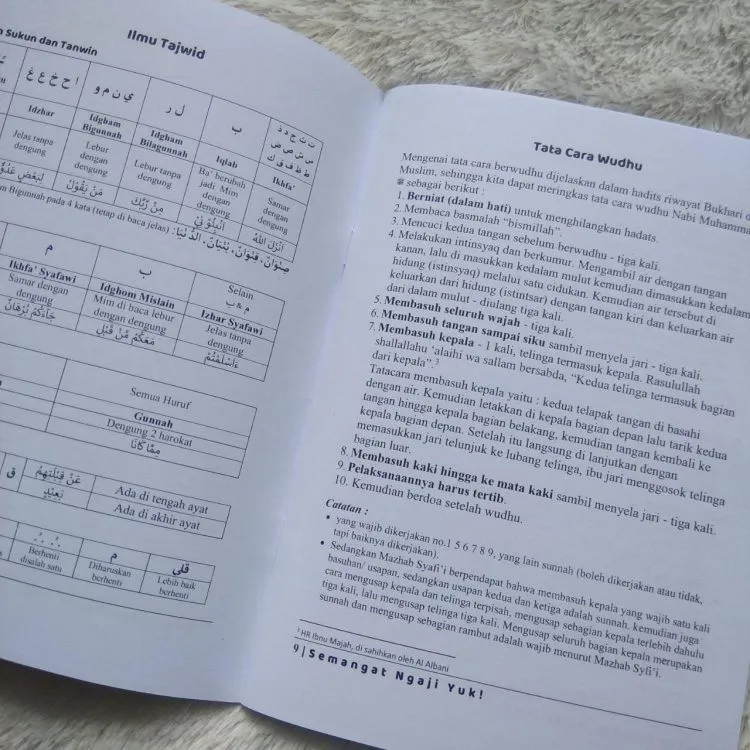 Sukun dan Tanwin
Ilmu Tajwid
ا ح خ ع غ
ي ن م و
ل ر
ب
Idzhar
Idgham Bigunnah
Idgham Bilagunnah
Iqlab
Ikhfa'
Jelas tanpa dengung
Lebur dengan dengung
Lebur tanpa dengung
Ba' berubah jadi Mim dengan dengung
Samar dengan dengung
مَنْ يَقُوْلُ
مِنْ رَّبِّكَ
Bigunnah pada 4 kata (tetap di baca jelas) : صِنْوَانٌ، قِنْوَانٌ، بُنْيَانٌ، الدُّنْيَا
م
ب
Selain
م & ب
Ikhfa' Syafawi
Idghom Mislain
Izhar Syafawi
Samar dengan dengung
Mim di baca lebur dengan dengung
Jelas tanpa dengung
Semua Huruf
Gunnah
Dengung 2 harokat
مِمَّا كَانَا
ق
Ada di tengah ayat
Ada di akhir ayat
م
قلى
Berhenti disalah satu
Diharuskan berhenti
Lebih baik berhenti
Tata Cara Wudhu
Mengenai tata cara berwudhu dijelaskan dalam hadits riwayat Bukhari
Muslim, sehingga kita dapat meringkas tata cara wudhu Nabi
ﷺ sebagai berikut :
1. Berniat (dalam hati) untuk menghilangkan hadats.
2. Membaca basmalah “bismillah”.
3. Mencuci kedua tangan sebelum berwudhu - tiga kali.
4. Melakukan intinsyaq dan berkumur. Mengambil air dengan tangan
kanan, lalu di masukkan kedalam mulut kemudian dimasukkan kedalam
hidung (istinsyaq) melalui satu cidukan. Kemudian air tersebut di
keluarkan dari hidung (istintsar) dengan tangan kiri dan keluarkan air
dari dalam mulut - diulang tiga kali.
5. Membasuh seluruh wajah - tiga kali.
6. Membasuh tangan sampai siku sambil menyela jari - tiga kali.
7. Membasuh kepala - 1 kali, telinga termasuk kepala. Rasulullah
shallallahu ‘alaihi wa sallam bersabda, “Kedua telinga termasuk bagian
dari kepala”.³
Tatacara membasuh kepala yaitu : kedua telapak tangan di basahi
dengan air. Kemudian letakkan di kepala bagian depan lalu tarik kedua
tangan hingga kepala bagian belakang, kemudian tangan kembali ke
kepala bagian depan. Setelah itu langsung di lanjutkan dengan
memasukkan jari telunjuk ke lubang telinga, ibu jari menggosok telinga
bagian luar.
8. Membasuh kaki hingga ke mata kaki sambil menyela jari - tiga kali.
9. Pelaksanaannya harus tertib.
10. Kemudian berdoa setelah wudhu.
Catatan :
• yang wajib dikerjakan no.1 5 6 7 8 9, yang lain sunnah (boleh dikerjakan atau tidak,
tapi baiknya dikerjakan).
• Sedangkan Mazhab Syafi’i berpendapat bahwa membasuh kepala yang wajib satu kali
basuhan/ usapan, sedangkan usapan kedua dan ketiga adalah sunnah. kemudian juga
cara mengusap kepala dan telinga terpisah, mengusap sebagian kepala terlebih dahulu
tiga kali, lalu mengusap telinga tiga kali. Mengusap seluruh bagian kepala merupakan
sunnah dan mengusap sebagian rambut adalah wajib menurut Mazhab Syfi’i.
³ HR Ibnu Majah, di sahihkan oleh Al Albani
9 | Semangat Ngaji Yuk!